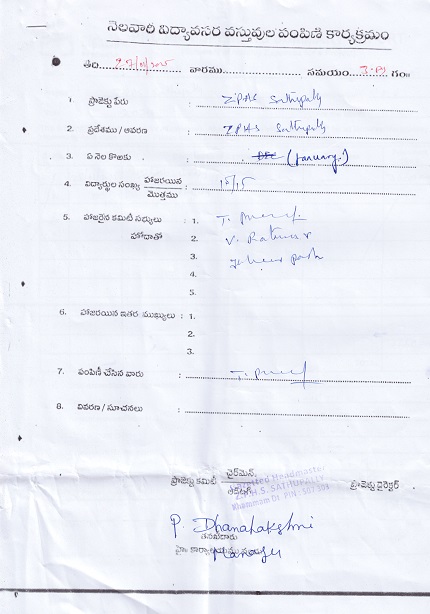 నెలవారీ విద్యావసర వస్తువుల పంపిణీ కార్యక్రమం
తేది 27/01/2015 వారము సమయం 3-00 గం॥
1. ప్రాజెక్టు పేరు : ZPHS Sathupally
2. ప్రదేశము / ఆవరణ : ZPHS Sathupally
3. ఏ నెల కొఱకు : (January.)
4. విద్యార్థుల సంఖ్య హాజరయిన / మొత్తము : 15/15
5. హాజరైన కమిటీ సభ్యులు : 1. T.
హోదాతో 2. V.
3.
4.
5.
6. హాజరయిన ఇతర ముఖ్యులు : 1.
2.
3.
7. పంపిణీ చేసిన వారు : T.
8. వివరణ / సూచనలు :
ప్రాజెక్టు కమిటీ చైర్మెన్, ప్రాజెక్టు డైరెక్టర్
Headmaster
Z.P.H.S. SATHUPALLY
Khammam Dt. PIN : 507 303
P. Dhanalakshmi
తనిఖీదారు
Manager